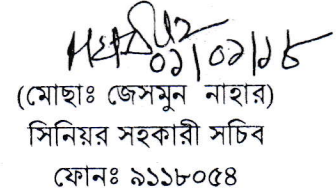 ০১/০১/১৮
(মোছাঃ জেসমুন নাহার)
সিনিয়র সহকারী সচিব
ফোনঃ ৯১১৮০৫৪